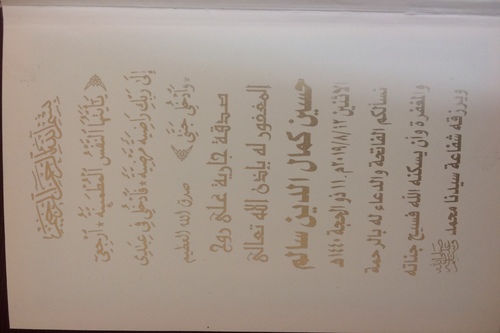 بسم الله الرحمن الرحيم
﴿ يَٰٓأَيَّتُهَا ٱلنَّفْسُ ٱلْمُطْمَئِنَّةُ ۝ ٱرْجِعِىٓ
إِلَىٰ رَبِّكِ رَاضِيَةً مَّرْضِيَّةً ۝ فَٱدْخُلِى فِى عِبَٰدِى
۝ وَٱدْخُلِى جَنَّتِى ﴾
صدق الله العظيم
صدقة جارية على روح
المغفور له بإذن الله تعالى
حسين كمال الدين سالم
لاثنين ٢٠١٩/٨/١٢م. ١١ ذو الحجة ١٤٤٠هـ
نسألكم الفاتحة والدعاء له بالرحمة
والمغفرة وأن يسكنه الله فسيح جناته
ويرزقه شفاعة سيدنا محمد ﷺ